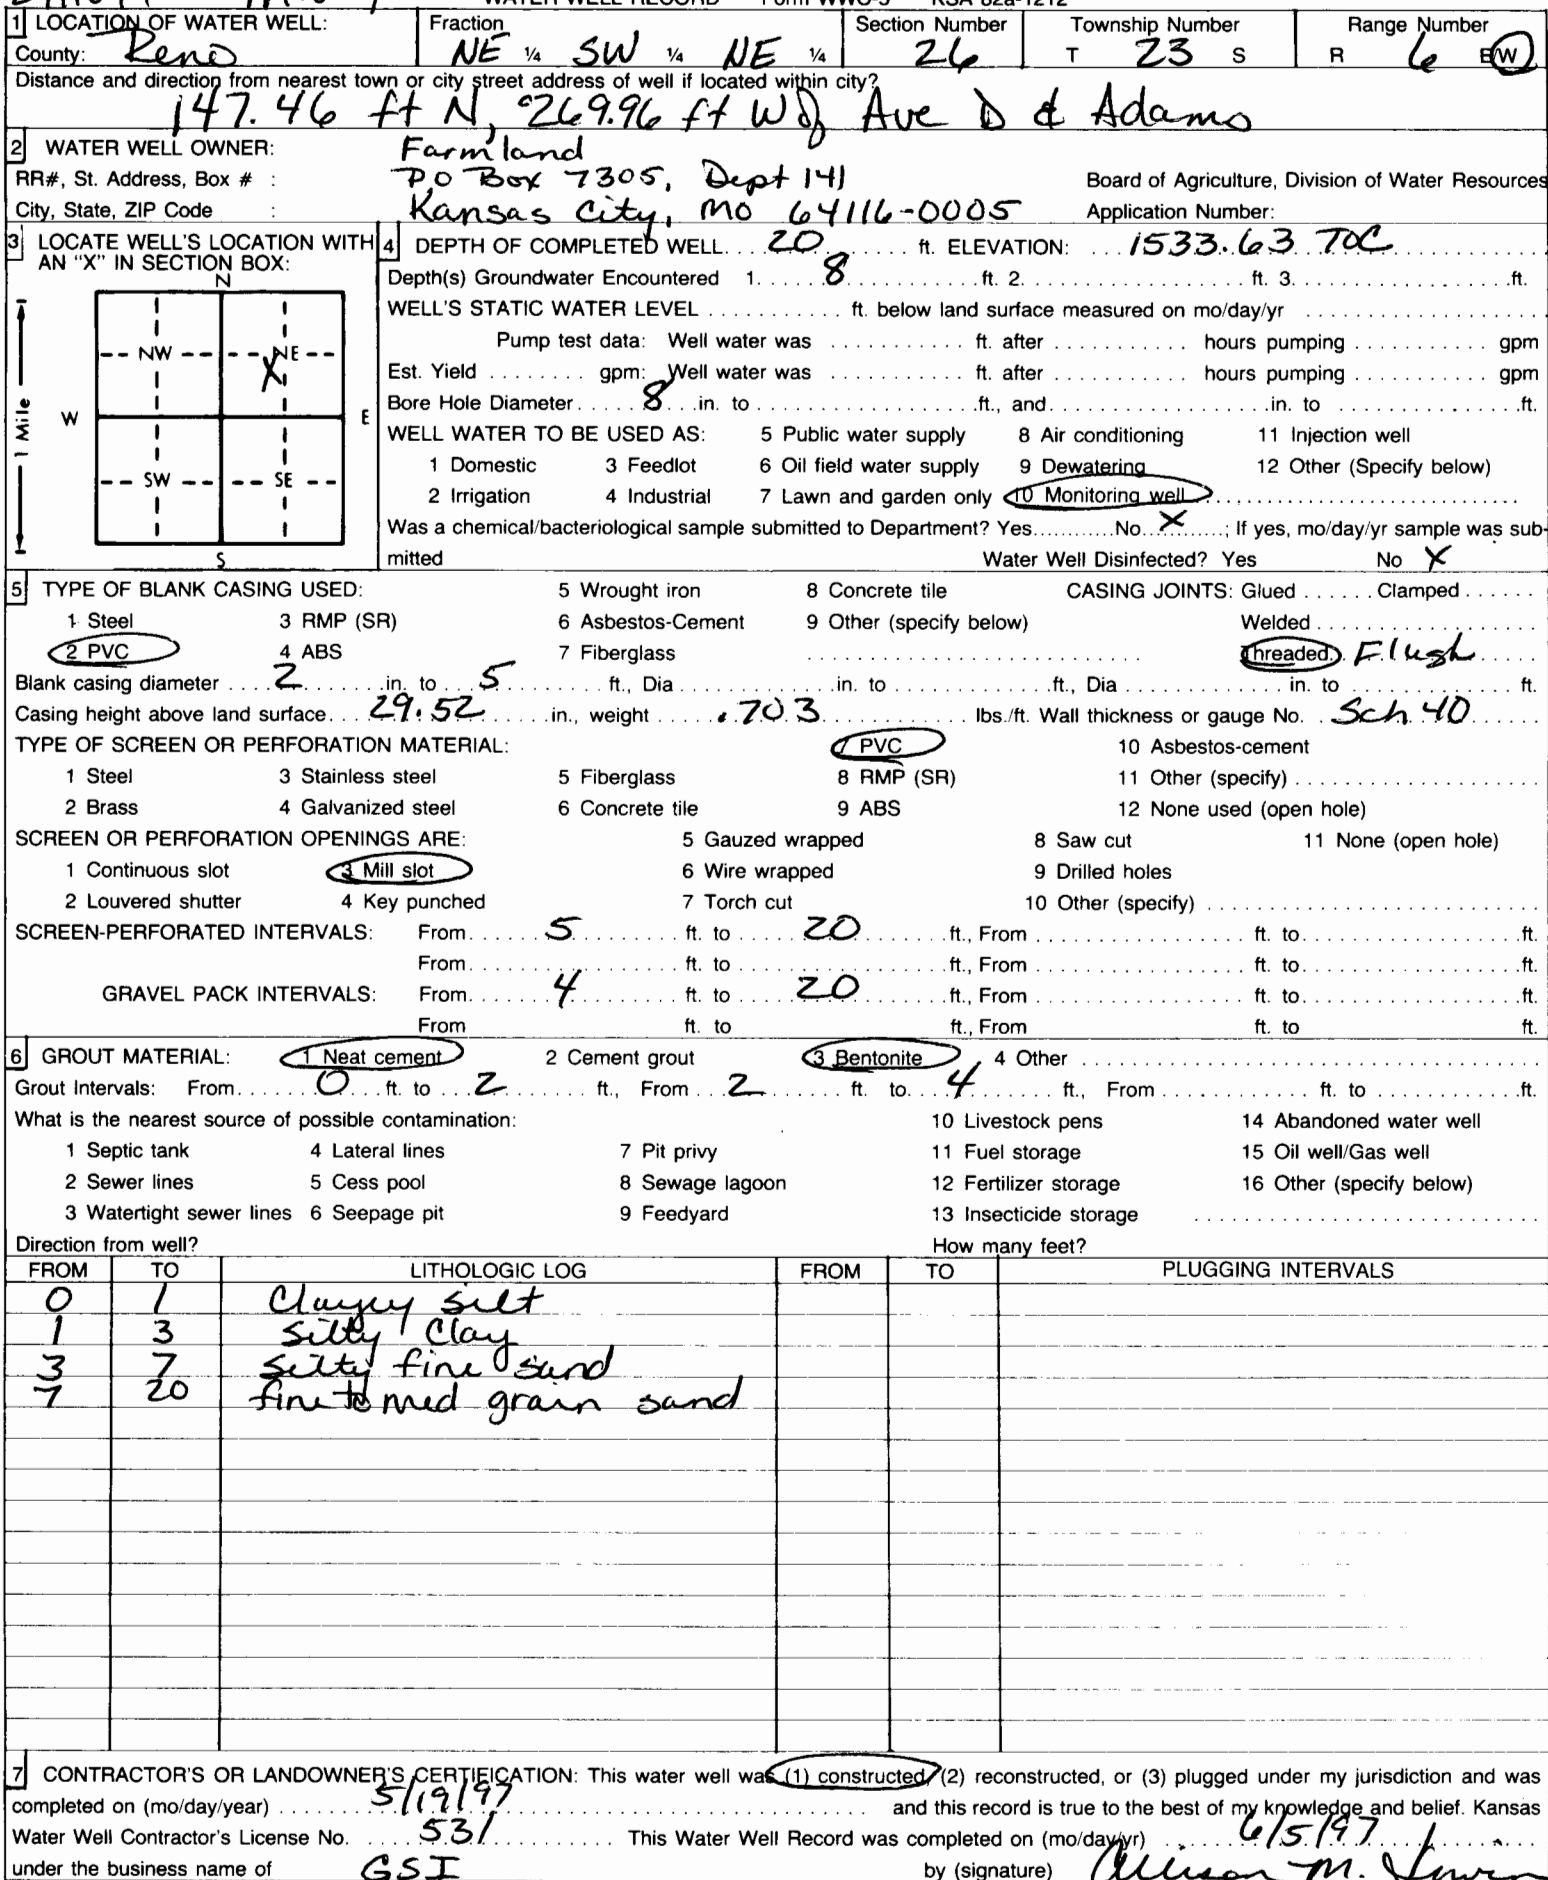 WATER WELL RECORD Form WWC-5 KSA 82a-1212
1 LOCATION OF WATER WELL: Fraction Section Number Township Number Range Number
County: Reno NE ¼ SW ¼ NE ¼ 26 T 23 S R 6 E/W
Distance and direction from nearest town or city street address of well if located within city?
147.46 ft N, 269.96 ft W of Ave D & Adams
2 WATER WELL OWNER: Farmland
RR#, St. Address, Box # : P.O Box 7305, Dept 141 Board of Agriculture, Division of Water Resources
City, State, ZIP Code : Kansas City, Mo 64116-0005 Application Number:
3 LOCATE WELL'S LOCATION WITH AN "X" IN SECTION BOX:
N
NW NE
X
W E
1 Mile
SW SE
S
4 DEPTH OF COMPLETED WELL 20 ft. ELEVATION: 1533.63 TOC
Depth(s) Groundwater Encountered 1. 8 ft. 2. ft. 3. ft.
WELL'S STATIC WATER LEVEL ft. below land surface measured on mo/day/yr
Pump test data: Well water was ft. after hours pumping gpm
Est. Yield gpm: Well water was ft. after hours pumping gpm
Bore Hole Diameter 8 in. to ft., and in. to ft.
WELL WATER TO BE USED AS: 5 Public water supply 8 Air conditioning 11 Injection well
1 Domestic 3 Feedlot 6 Oil field water supply 9 Dewatering 12 Other (Specify below)
2 Irrigation 4 Industrial 7 Lawn and garden only 10 Monitoring well
Was a chemical/bacteriological sample submitted to Department? Yes No X ; If yes, mo/day/yr sample was sub-
mitted Water Well Disinfected? Yes No X
5 TYPE OF BLANK CASING USED: 5 Wrought iron 8 Concrete tile CASING JOINTS: Glued Clamped
1 Steel 3 RMP (SR) 6 Asbestos-Cement 9 Other (specify below) Welded
2 PVC 4 ABS 7 Fiberglass Threaded Flush
Blank casing diameter 2 in. to 5 ft., Dia in. to ft., Dia in. to ft.
Casing height above land surface 29.52 in., weight .703 lbs./ft. Wall thickness or gauge No. Sch 40
TYPE OF SCREEN OR PERFORATION MATERIAL: 7 PVC 10 Asbestos-cement
1 Steel 3 Stainless steel 5 Fiberglass 8 RMP (SR) 11 Other (specify)
2 Brass 4 Galvanized steel 6 Concrete tile 9 ABS 12 None used (open hole)
SCREEN OR PERFORATION OPENINGS ARE: 5 Gauzed wrapped 8 Saw cut 11 None (open hole)
1 Continuous slot 3 Mill slot 6 Wire wrapped 9 Drilled holes
2 Louvered shutter 4 Key punched 7 Torch cut 10 Other (specify)
SCREEN-PERFORATED INTERVALS: From 5 ft. to 20 ft., From ft. to ft.
From ft. to ft., From ft. to ft.
GRAVEL PACK INTERVALS: From 4 ft. to 20 ft., From ft. to ft.
From ft. to ft., From ft. to ft.
6 GROUT MATERIAL: 1 Neat cement 2 Cement grout 3 Bentonite 4 Other
Grout Intervals: From 0 ft. to 2 ft., From 2 ft. to 4 ft., From ft. to ft.
What is the nearest source of possible contamination: 10 Livestock pens 14 Abandoned water well
1 Septic tank 4 Lateral lines 7 Pit privy 11 Fuel storage 15 Oil well/Gas well
2 Sewer lines 5 Cess pool 8 Sewage lagoon 12 Fertilizer storage 16 Other (specify below)
3 Watertight sewer lines 6 Seepage pit 9 Feedyard 13 Insecticide storage
Direction from well? How many feet?
FROM TO LITHOLOGIC LOG FROM TO PLUGGING INTERVALS
0 1 Clayey silt
1 3 Silty Clay
3 7 Silty fine sand
7 20 fine to med grain sand
7 CONTRACTOR'S OR LANDOWNER'S CERTIFICATION: This water well was (1) constructed, (2) reconstructed, or (3) plugged under my jurisdiction and was
completed on (mo/day/year) 5/19/97 and this record is true to the best of my knowledge and belief. Kansas
Water Well Contractor's License No. 531 This Water Well Record was completed on (mo/day/yr) 6/5/97
under the business name of GSI by (signature) Allison M.